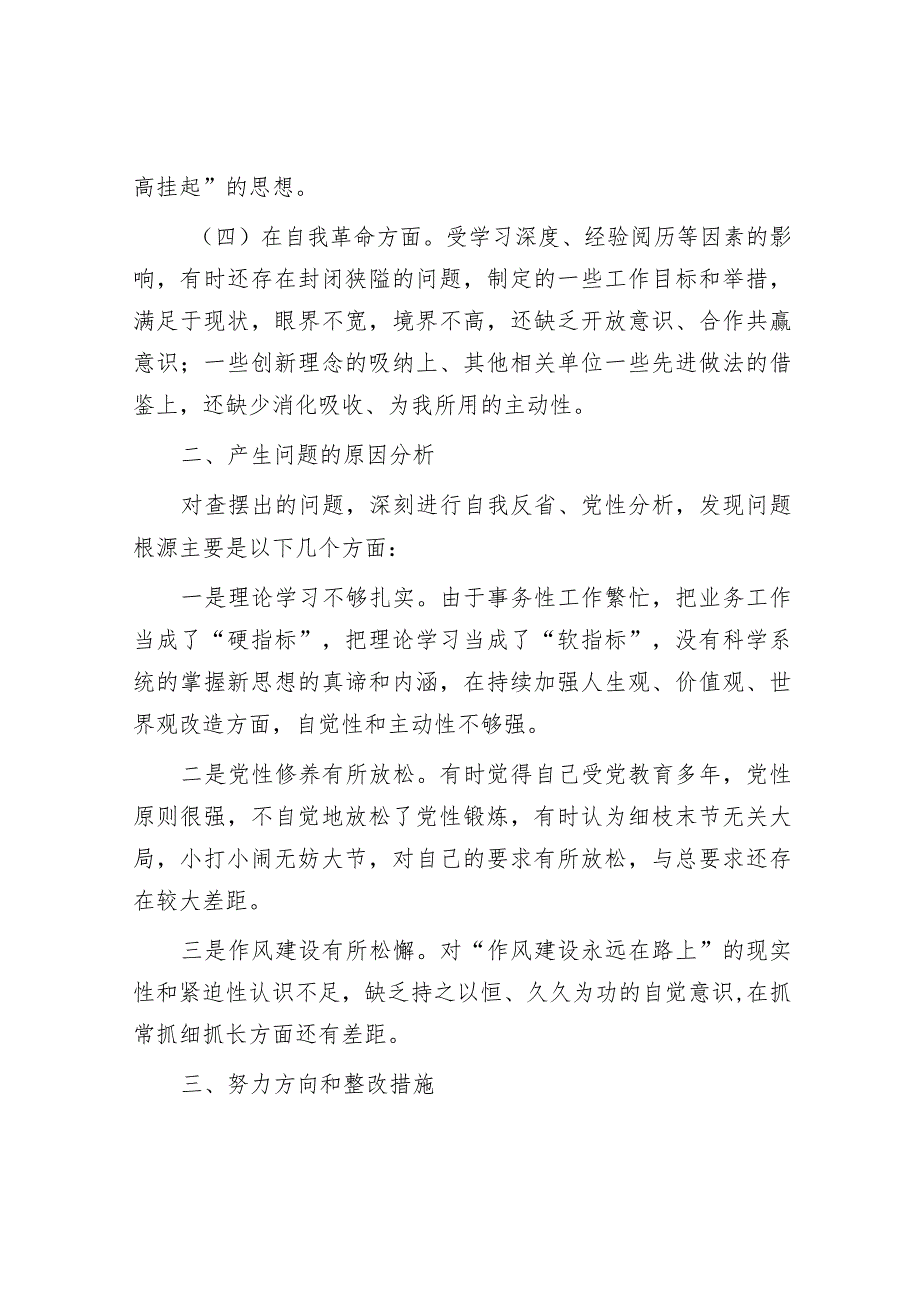 高挂起”的思想。
（四）在自我革命方面。受学习深度、经验阅历等因素的影
响，有时还存在封闭狭隘的问题，制定的一些工作目标和举措，
满足于现状，眼界不宽，境界不高，还缺乏开放意识、合作共赢
意识；一些创新理念的吸纳上、其他相关单位一些先进做法的借
鉴上，还缺少消化吸收、为我所用的主动性。
二、产生问题的原因分析
对查摆出的问题，深刻进行自我反省、党性分析，发现问题
根源主要是以下几个方面：
一是理论学习不够扎实。由于事务性工作繁忙，把业务工作
当成了“硬指标”，把理论学习当成了“软指标”，没有科学系
统的掌握新思想的真谛和内涵，在持续加强人生观、价值观、世
界观改造方面，自觉性和主动性不够强。
二是党性修养有所放松。有时觉得自己受党教育多年，党性
原则很强，不自觉地放松了党性锻炼，有时认为细枝末节无关大
局，小打小闹无妨大节，对自己的要求有所放松，与总要求还存
在较大差距。
三是作风建设有所松懈。对“作风建设永远在路上”的现实
性和紧迫性认识不足，缺乏持之以恒、久久为功的自觉意识,在抓
常抓细抓长方面还有差距。
三、努力方向和整改措施